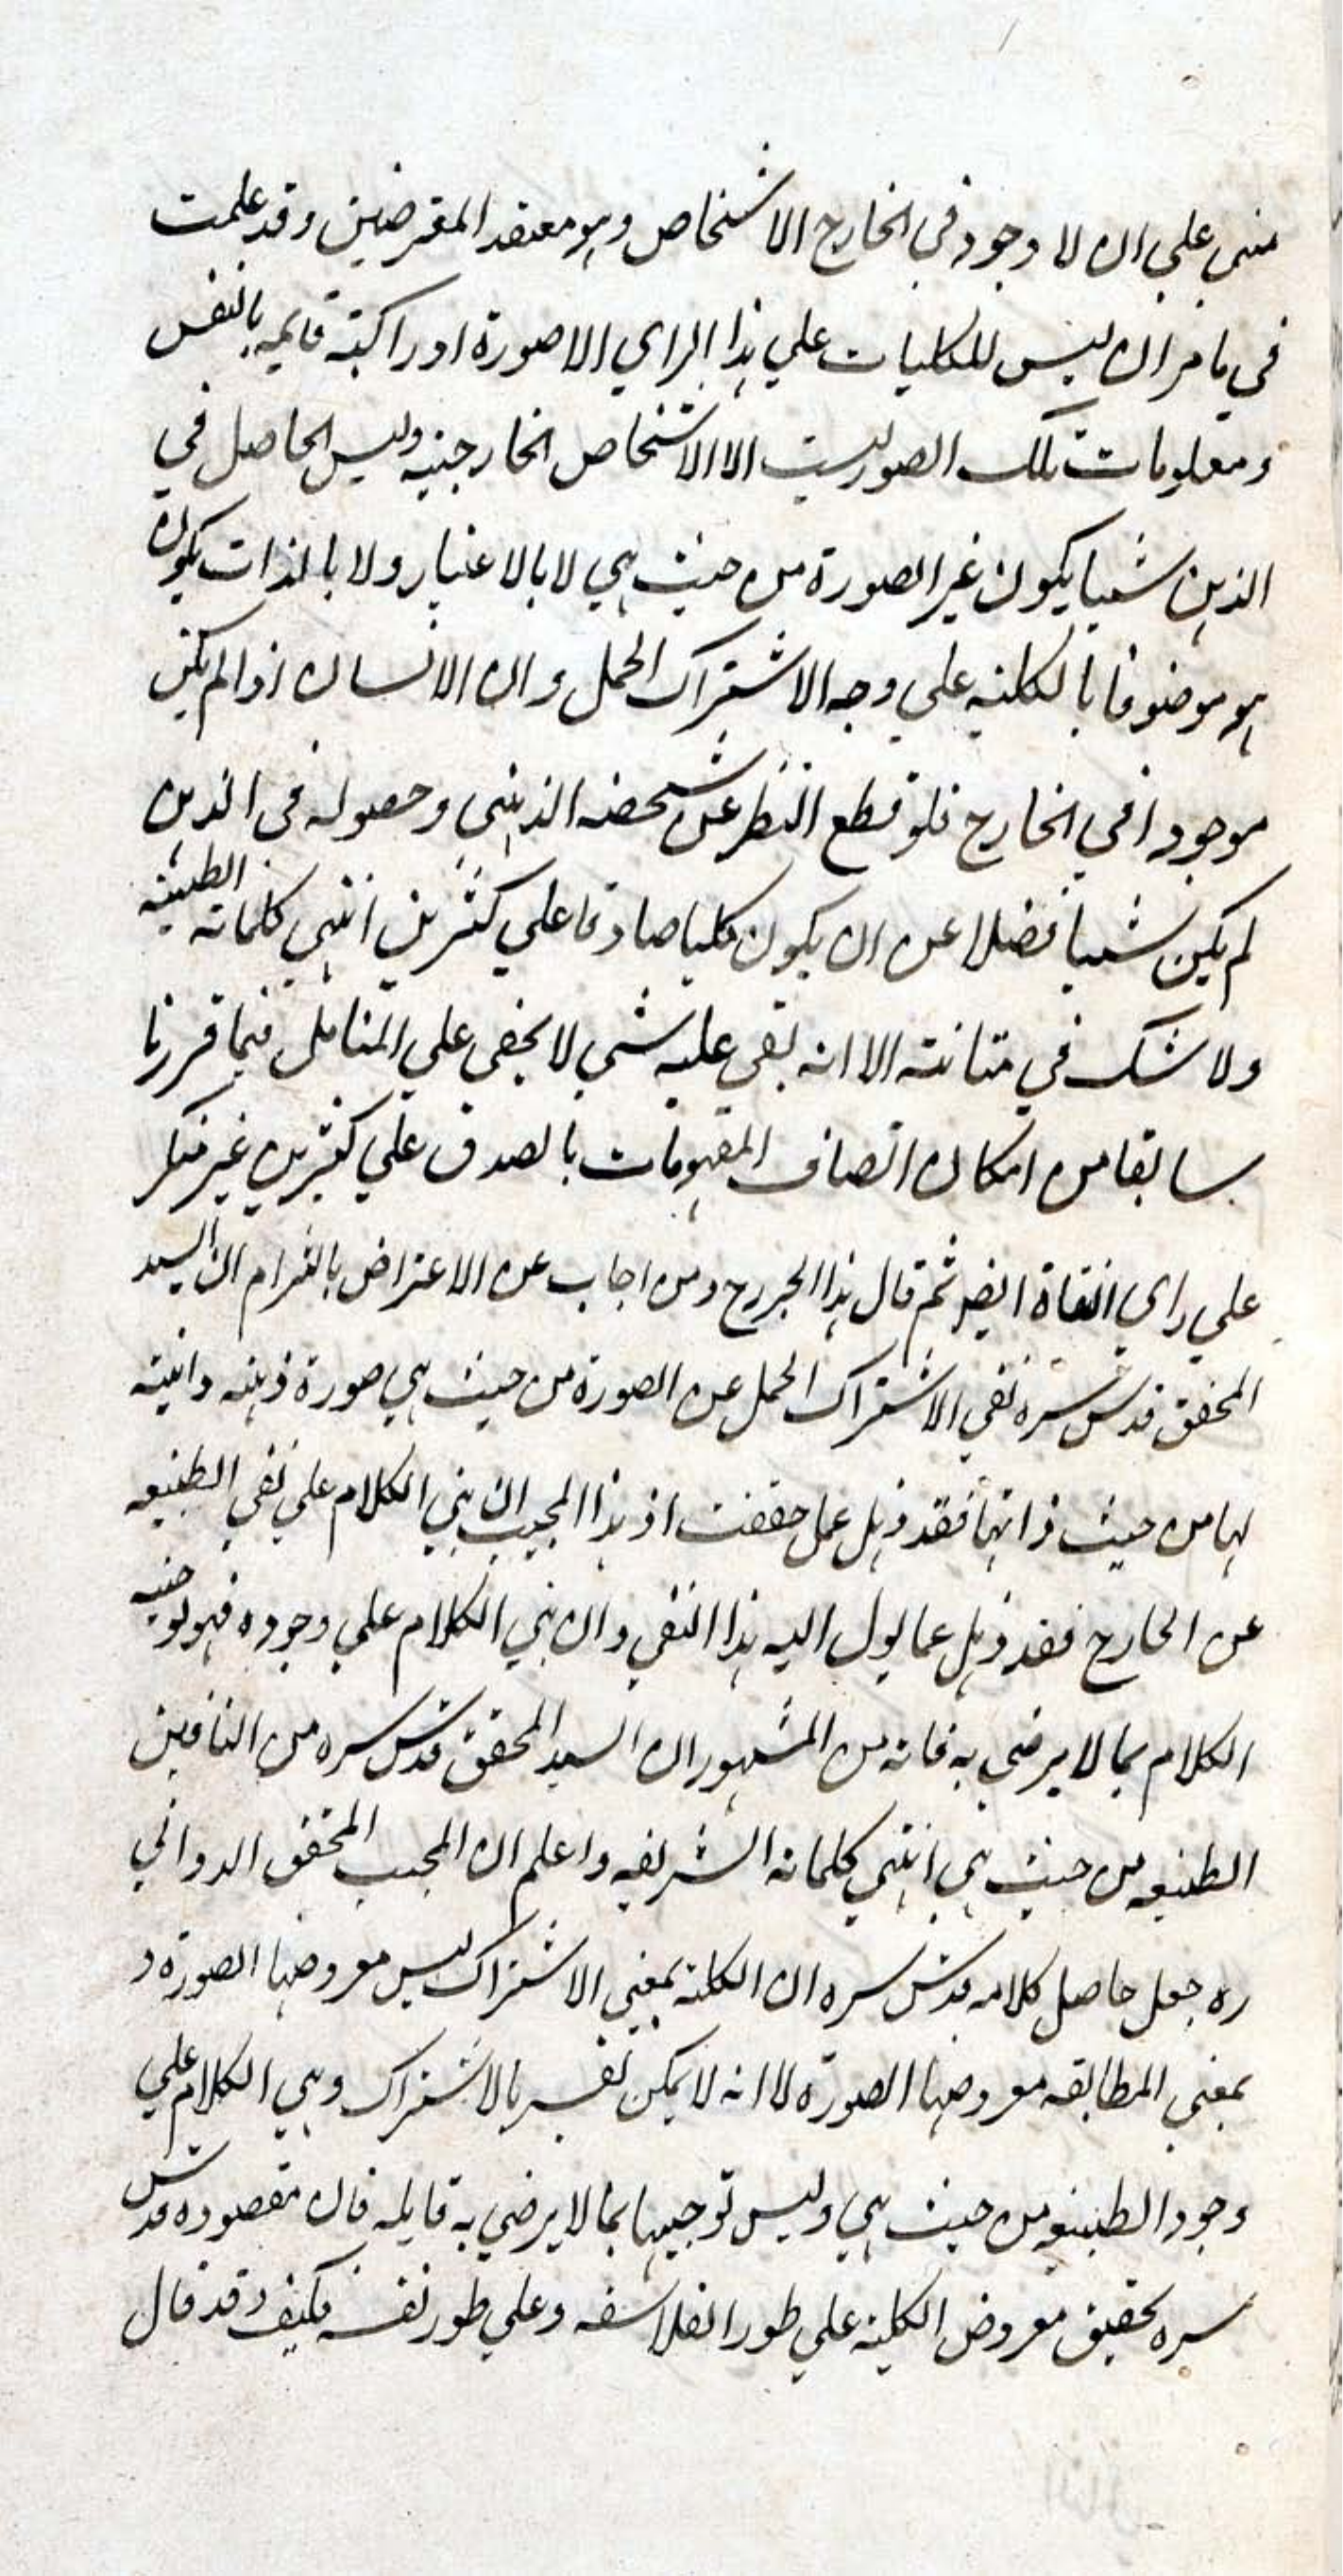 مبنى علي ان لا وجود في الخارج الا اشخاص وهو معتقد المقرضين وقد علمت
في ما مر ان ليس للكليات علي هذا الراي الا صورة ادراكية قايمه بالنفس
ومعلومات تلك الصور ليست الا الاشخاص الخارجيه وليس الحاصل في
الذهن شيا يكون غير الصورة من حيث هي لا بالاعتبار ولا بالذات يكون
هو موصوفا بالكليه علي وجه الاشتراك الحمل وان الانسان اذا لم يكن
موجودا في الخارج فلو قطع النظر عن تشخصه الذهني وحصوله في الذهن
لم يكن شيا فضلا عن ان يكون كليا صادقا علي كثيرين انتهي كلماته الطيبه
ولا شك في متانته الا انه بقي عليه شي لا يخفي علي المتامل فيما قررنا
سابقا من امكان اتصاف المفهومات بالصدق علي كثيرين غير منكر
علي راي النفاة ايضا ثم قال هذا الجرح ومن اجاب عن الاعتراض بالتزام ان السيد
المحقق قدس سره نفي الاشتراك الحمل عن الصورة من حيث هي صورة ذهنيه واثبته
لها من حيث ذاتها فقد ذهل عما حققت اذ هذا المجيب ان بني الكلام علي نفي الطبيعه
عن الخارج فقد ذهل عما يول اليه هذا النفي وان بني الكلام علي وجوده فهو توجيه
الكلام بما لا يرضي به فانه من المشهور ان السيد المحقق قدس سره من النافين
الطبيعه من حيث هي انتهي كلماته الشريفه واعلم ان المجيب المحقق الدواني
ره جعل حاصل كلامه قدس سره ان الكلية بمعني الاشتراك ليس معروضها الصورة و
بمعني المطابقه معروضها الصورة لا انه لا يمكن تفسير بالاشتراك وبني الكلام علي
وجود الطبيعه من حيث هي وليس توجيها بما لا يرضي به قايله فان مقصوده قدس
سره تحقيق معروض الكلية علي طور الفلاسفه وعلي طور نفسه فكيف وقد قال